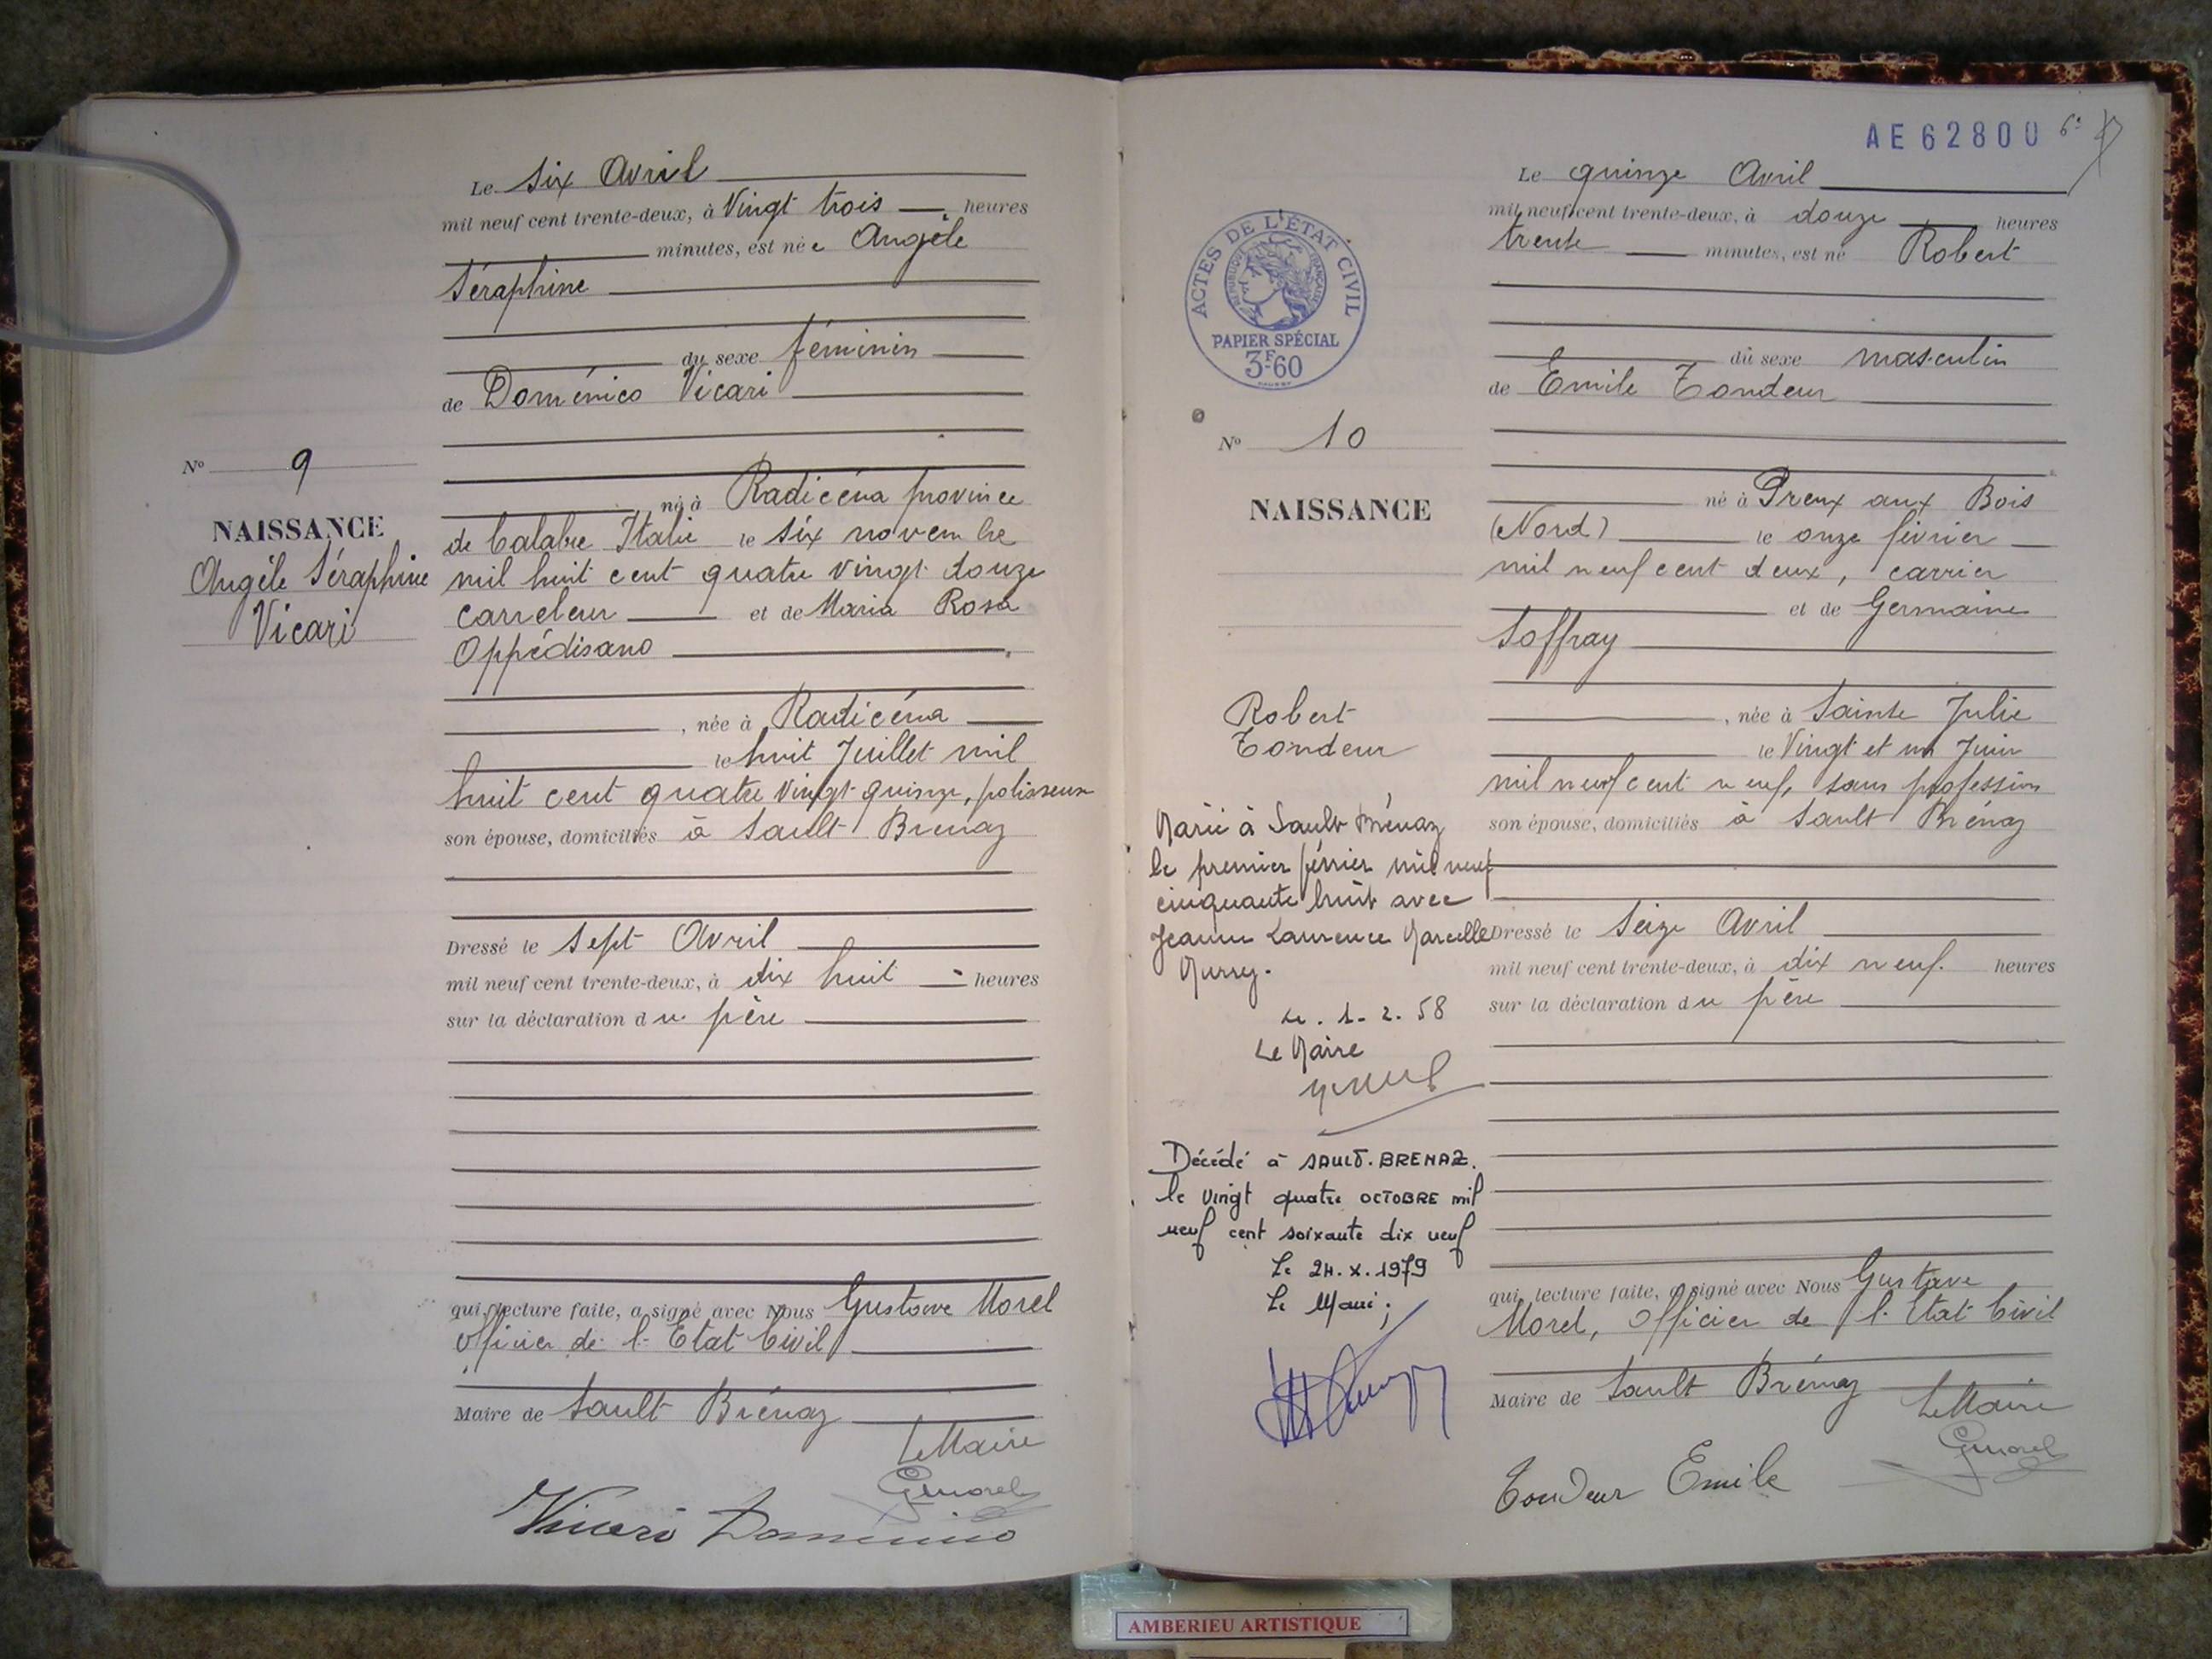 Le six Avril
mil neuf cent trente-deux, à Vingt trois heures
minutes, est née Angèle
Séraphine
du sexe féminin
de Doménico Vicari
né à Radicéna province
de Calabre Italie le six novembre
mil huit cent quatre vingt douze
carreleur et de Maria Rosa
Oppédisano
, née à Radicéna
le huit Juillet mil
huit cent quatre vingt quinze, polisseuse
son épouse, domiciliés à Sault Brénaz
Dressé le sept Avril
mil neuf cent trente-deux, à dix huit heures
sur la déclaration du père
qui, lecture faite, a signé avec Nous Gustave Morel
officier de l'Etat Civil
Maire de Sault Brénaz
Le Maire
GMorel
Vicari Domenico
No 9
NAISSANCE
Angèle Séraphine
Vicari
AE62800
Le quinze Avril
mil neuf cent trente-deux, à douze heures
trente minutes, est né Robert
du sexe masculin
de Emile Tondeur
né à Preux aux Bois
(Nord) le onze février
mil neuf cent deux, carrier
et de Germaine
Soffray
, née à Sainte Julie
le Vingt et un Juin
mil neuf cent neuf, sans profession
son épouse, domiciliés à Sault Brénaz
Dressé le Seize Avril
mil neuf cent trente-deux, à dix neuf heures
sur la déclaration du père
qui, lecture faite, a signé avec Nous Gustave
Morel, officier de l'Etat Civil
Maire de Sault Brénaz
Le Maire
GMorel
Tondeur Emile
ACTES DE L'ÉTAT CIVIL
RÉPUBLIQUE FRANÇAISE
PAPIER SPÉCIAL
3F60
No 10
NAISSANCE
Robert
Tondeur
Marié à Sault Brénaz
le premier février mil neuf
cinquante huit avec
Jeanne Laurence Marcelle
Le. 1. 2. 58
Le Maire
Décédé à SAULT.BRENAZ.
le vingt quatre OCTOBRE mil
neuf cent soixante dix neuf
Le 24.X.1979
Le Maire;
AMBERIEU ARTISTIQUE